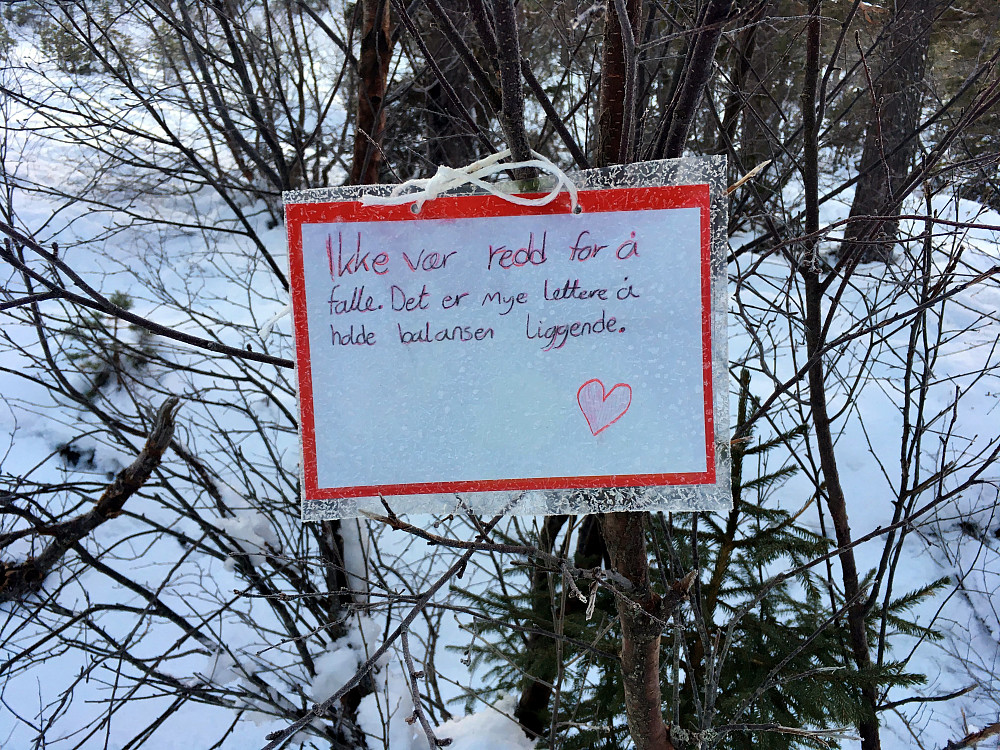 Ikke vær redd for å
falle. Det er mye lettere å
holde balansen liggende.